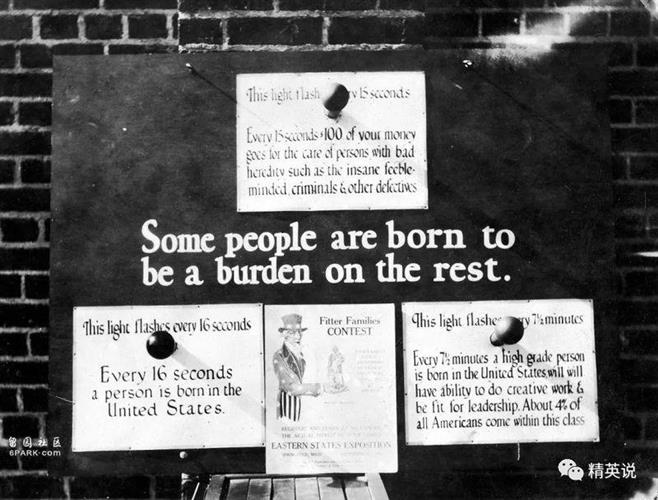 This light flash ry 15 seconds
Every 15 seconds $100 of your money
goes for the care of persons with bad
heredity such as the insane feeble-
minded, criminals & other defectives
Some people are born to
be a burden on the rest.
This light flashes every 16 seconds
Every 16 seconds
a person is born in the
United States.
Fitter Families
CONTEST
EASTERN STATES EXPOSITION
This light flashes ry 7½ minutes
Every 7½ minutes a high grade person
is born in the United States, will will
have ability to do creative work &
be fit for leadership. About 4% of
all Americans come within this class
6PARK.com
精英说